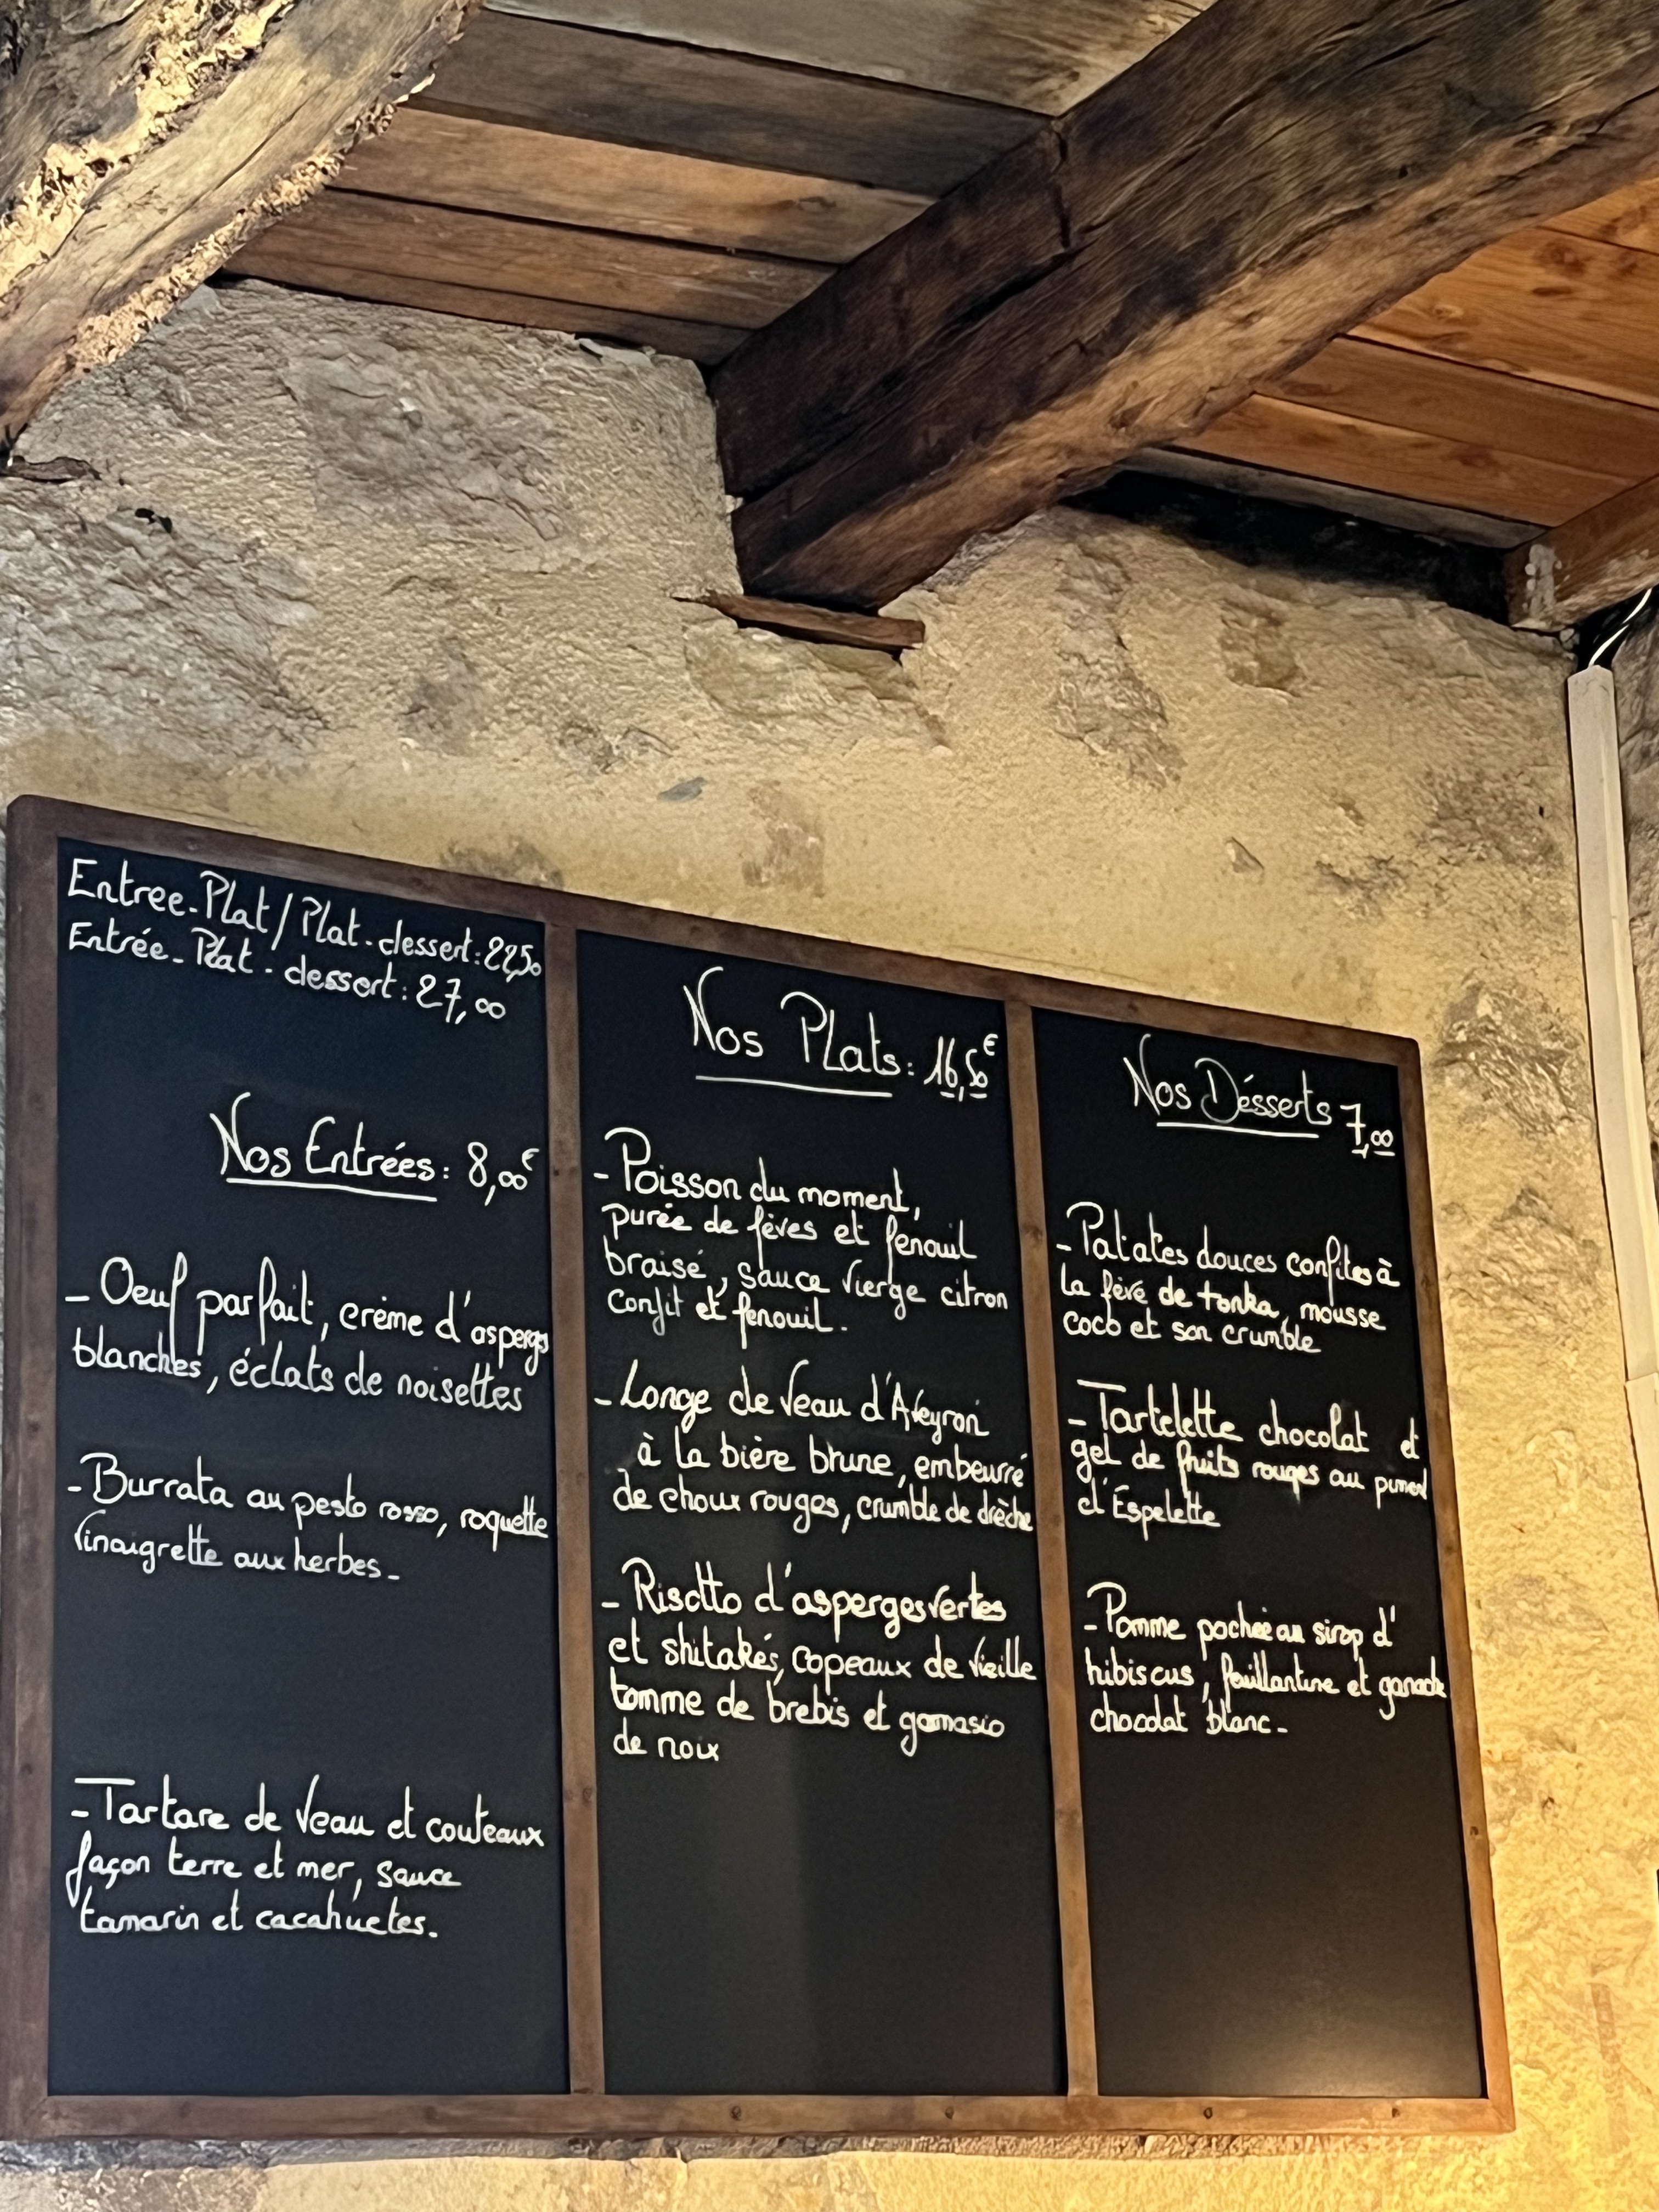 Entree-Plat / Plat-dessert : 22,50
Entrée-Plat-dessert : 27,00
Nos Entrées : 8,00€
- Oeuf parfait, crème d'asperges
blanches, éclats de noisettes
- Burrata au pesto rosso, roquette
vinaigrette aux herbes-
- Tartare de veau et couteaux
façon terre et mer, sauce
tamarin et cacahuetes.
Nos Plats : 16,50€
- Poisson du moment,
purée de fèves et fenouil
braisé, sauce vierge citron
confit et fenouil.
- Longe de veau d'Aveyron
à la bière brune, embeurré
de choux rouges, crumble de drèche
- Risotto d'asperges vertes
et shitakés, copeaux de vieille
tomme de brebis et gomasio
de noix
Nos Désserts 7,00
- Patates douces confites à
la fève de tonka, mousse
coco et son crumble
- Tartelette chocolat et
gel de fruits rouges au piment
d'Espelette
- Pomme pochée au sirop d'
hibiscus, feuillantine et ganache
chocolat blanc-